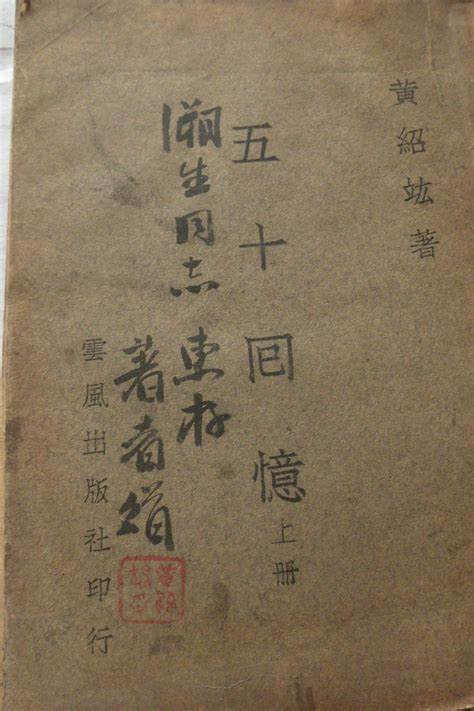 黃紹竑著
五十回憶
上册
生同志
惠存
著者贈
雲風出版社印行